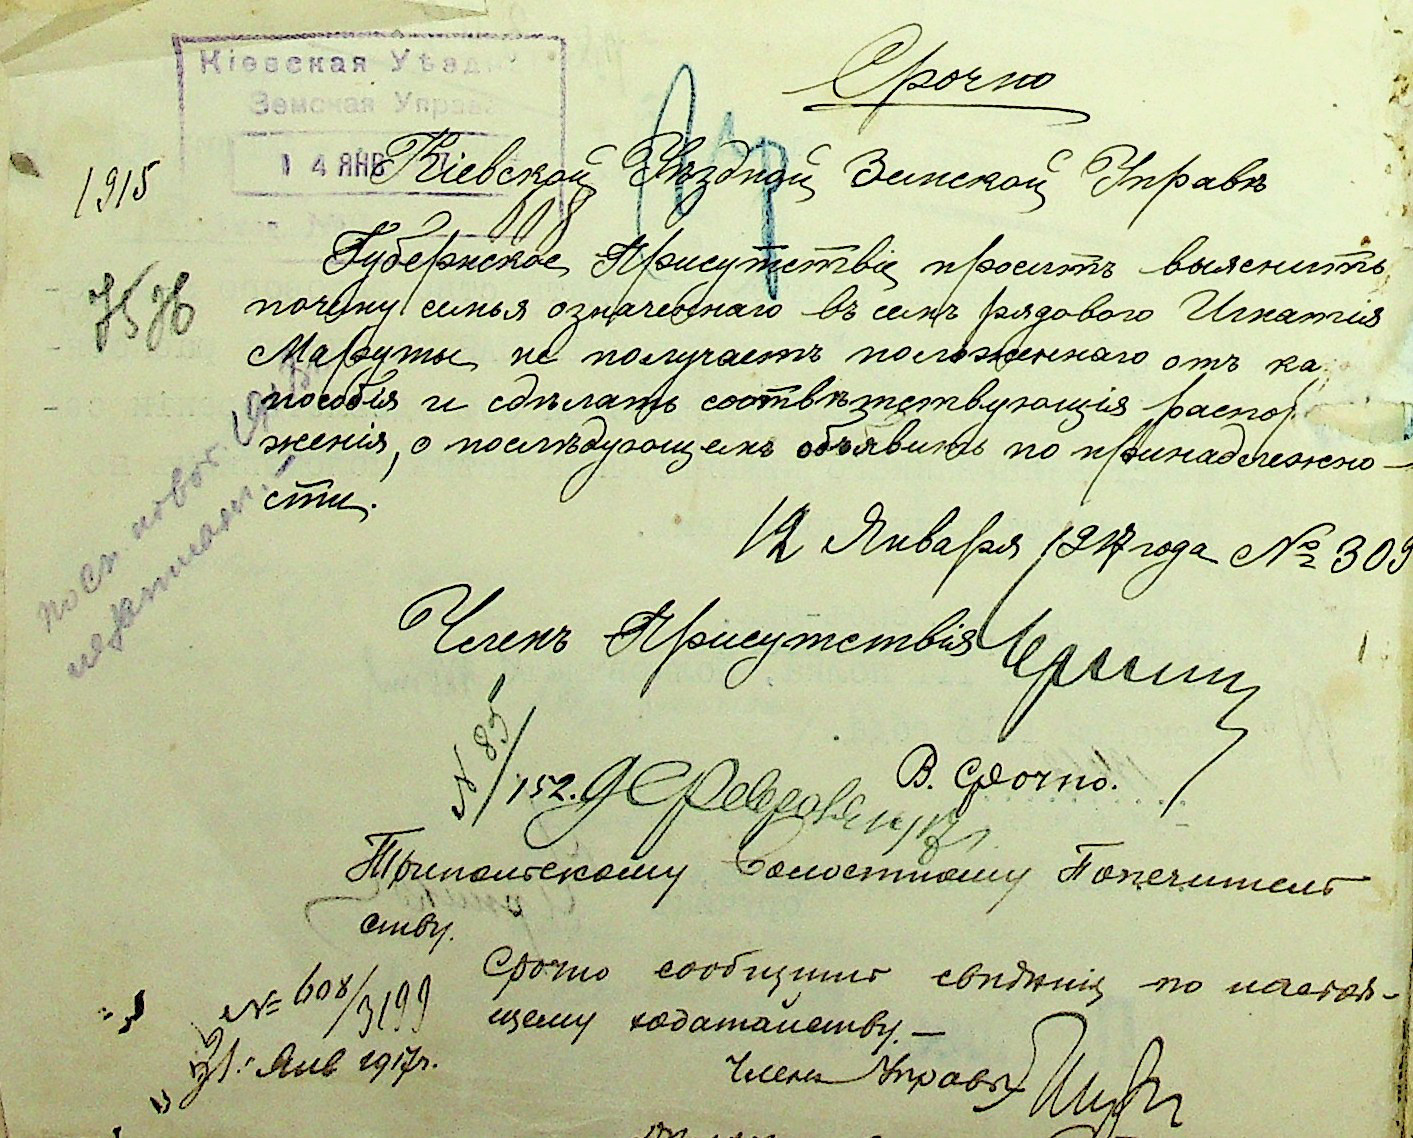 Кіевская Уѣздн
Земская Управа
14 ЯНВ
Срочно
1915
Кіевской Уѣздной Земской Управѣ
118
Губернское Присутствіе проситъ выяснить
почему семья означеннаго въ семъ рядового Игнатія
Маруты не получаетъ положеннаго отъ ка
пособія и сдѣлать соотвѣтствующія распор
женія, о послѣдующемъ объявить по принадлежно-
сти.
12 Января 1917 года № 309
Членъ Присутствія
N 85/152.
В. Срочно.
Трипольскому Волостному Попечитель
ству.
Срочно сообщить свѣдѣнія по настоя-
щему ходатайству.-
№ 608/3199
31 Янв 1917г.
Членъ Управы